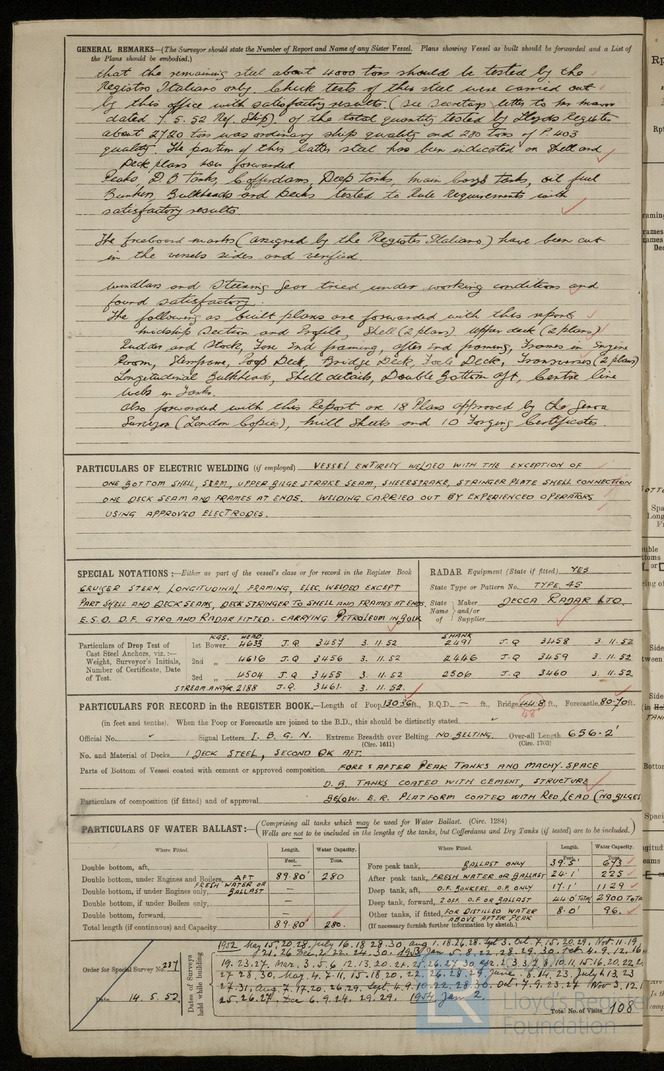 GENERAL REMARKS—(The Surveyor should state the Number of Report and Name of any Sister Vessel. Plans showing Vessel as built should be forwarded and a List of
the Plans should be embodied.)
that the remaining steel about 4000 tons should be tested by the
Registro Italiano only. Check tests of this steel were carried out
by this office with satisfactory results. (see Secretary's letter to
dated 7.5.52 Ref. Ship). Of the total quantity tested by Lloyds Register
about 2720 tons was ordinary ship quality and 280 tons of P.403
quality. The position of this latter steel has been indicated on Shell and
Deck plans now forwarded
Peaks, D.B. Tanks, Cofferdams, Deep Tanks, Main Cargo Tanks, oil fuel
Bunkers, Bulkheads and Decks tested to Rule Requirements with
satisfactory results.
The freeboard marks (assigned by the Registro Italiano) have been cut
in the vessels sides and verified.
Windlass and Steering Gear tried under working conditions and
found satisfactory.
The following as built plans are forwarded with this report
Midship Section and Profile, Shell (2 plans) Upper deck (2 plans)
Rudder and Stock, Fore End framing, After End framing, Frames in Engine
Room, Sternframe, Poop Deck, Bridge Deck, Focle Deck, Transverses (2 plans)
Longitudinal Bulkheads, Shell details, Double Bottom aft, Centre line
webs in Tanks.
Also forwarded with this Report are 18 Plans approved by the Genoa
Surveyors (London Copies), Mill Sheets and 10 Forging Certificates.
PARTICULARS OF ELECTRIC WELDING (if employed) VESSEL ENTIRELY WELDED WITH THE EXCEPTION OF
ONE BOTTOM SHELL SEAM, UPPER BILGE STRAKE SEAM, SHEERSTRAKE, STRINGER PLATE SHELL CONNECTION
ONE DECK SEAM AND FRAMES AT ENDS. WELDING CARRIED OUT BY EXPERIENCED OPERATORS
USING APPROVED ELECTRODES.
SPECIAL NOTATIONS:—Either as part of the vessel's class or for record in the Register Book
CRUISER STERN, LONGITUDINAL FRAMING, ELEC. WELDED EXCEPT
PART SHELL AND DECK SEAMS, DECK STRINGER TO SHELL AND FRAMES AT ENDS.
E.S.D. D.F. GYRO AND RADAR FITTED. CARRYING PETROLEUM IN BULK
RADAR Equipment (State if fitted) YES
State Type or Pattern No. TYPE 45
State Name of Maker and/or Supplier DECCA RADAR LTD.
Particulars of Drop Test of Cast Steel Anchors, viz:— Weight, Surveyor's Initials, Number of Certificate, Date of Test.
KGS. HEAD SHANK
1st Bower 4633 J.Q. 3457 3.11.52 2491 J.Q 3458 3.11.52
2nd „ 4616 J.Q. 3456 3.11.52 2446 J.Q 3459 3.11.52
3rd „ 4504 J.Q. 3455 3.11.52 2506 J.Q 3460 3.11.52
STREAM ANCHOR 2188 J.Q. 3461 3.11.52
PARTICULARS FOR RECORD in the REGISTER BOOK.—Length of Poop 130.36 ft., R.Q.D. — ft., Bridge 44.8 ft., Forecastle 80.70 ft.
(in feet and tenths). When the Poop or Forecastle are joined to the B.D., this should be distinctly stated „
Official No. „ Signal Letters I. B. G. N. Extreme Breadth over Belting NO BELTING. Over-all Length 656.2'
(Circ. 1611) (Circ. 1703)
No. and Material of Decks 1 DECK STEEL, SECOND DK AFT.
Parts of Bottom of Vessel coated with cement or approved composition FORE & AFTER PEAK TANKS AND MACHY. SPACE
D.B. TANKS COATED WITH CEMENT, STRUCTURE
Particulars of composition (if fitted) and of approval BELOW E.R. PLATFORM COATED WITH RED LEAD (NO BILGES
PARTICULARS OF WATER BALLAST:—(Comprising all tanks which may be used for Water Ballast. (Circ. 1284)
Wells are not to be included in the lengths of the tanks, but Cofferdams and Dry Tanks (if tested) are to be included.)
Where Fitted. Length. Feet. Water Capacity. Tons.
Double bottom, aft, —
Double bottom, under Engines and Boilers, AFT FRESH WATER OR BALLAST 89.80' 280
Double bottom, if under Engines only, —
Double bottom, if under Boilers only, —
Double bottom, forward, —
Total length (if continuous) and Capacity 89.80' 280.
Where Fitted. Length. Feet. Water Capacity. Tons.
Fore peak tank, BALLAST ONLY 39.5' 673
After peak tank, FRESH WATER OR BALLAST 24.1' 225
Deep tank, aft, O.F. BUNKERS. O.F. ONLY 17.1' 1129
Deep tank, forward, 2 OFF. O.F OR BALLAST 44.0' TOTAL 2900 TOTAL
Other tanks, if fitted, FOR DISTILLED WATER ABOVE AFTER PEAK 8.0' 96.
(If necessary furnish further information by sketch.)
Order for Special Survey No. 237
Date 14.5.52
Dates of Surveys held while building
1952 May 15, 20. 28, July 16. 18 28. 30, Aug. 1. 18. 26. 28. Sept 3. Oct. 7. 15. 20. 29, Nov. 11. 19,
25. 26. 27. Dec 6. 9. 24. 29. 29. 1954 Jan 2.
Total No. of Visits 108
Lloyd's Register
Foundation